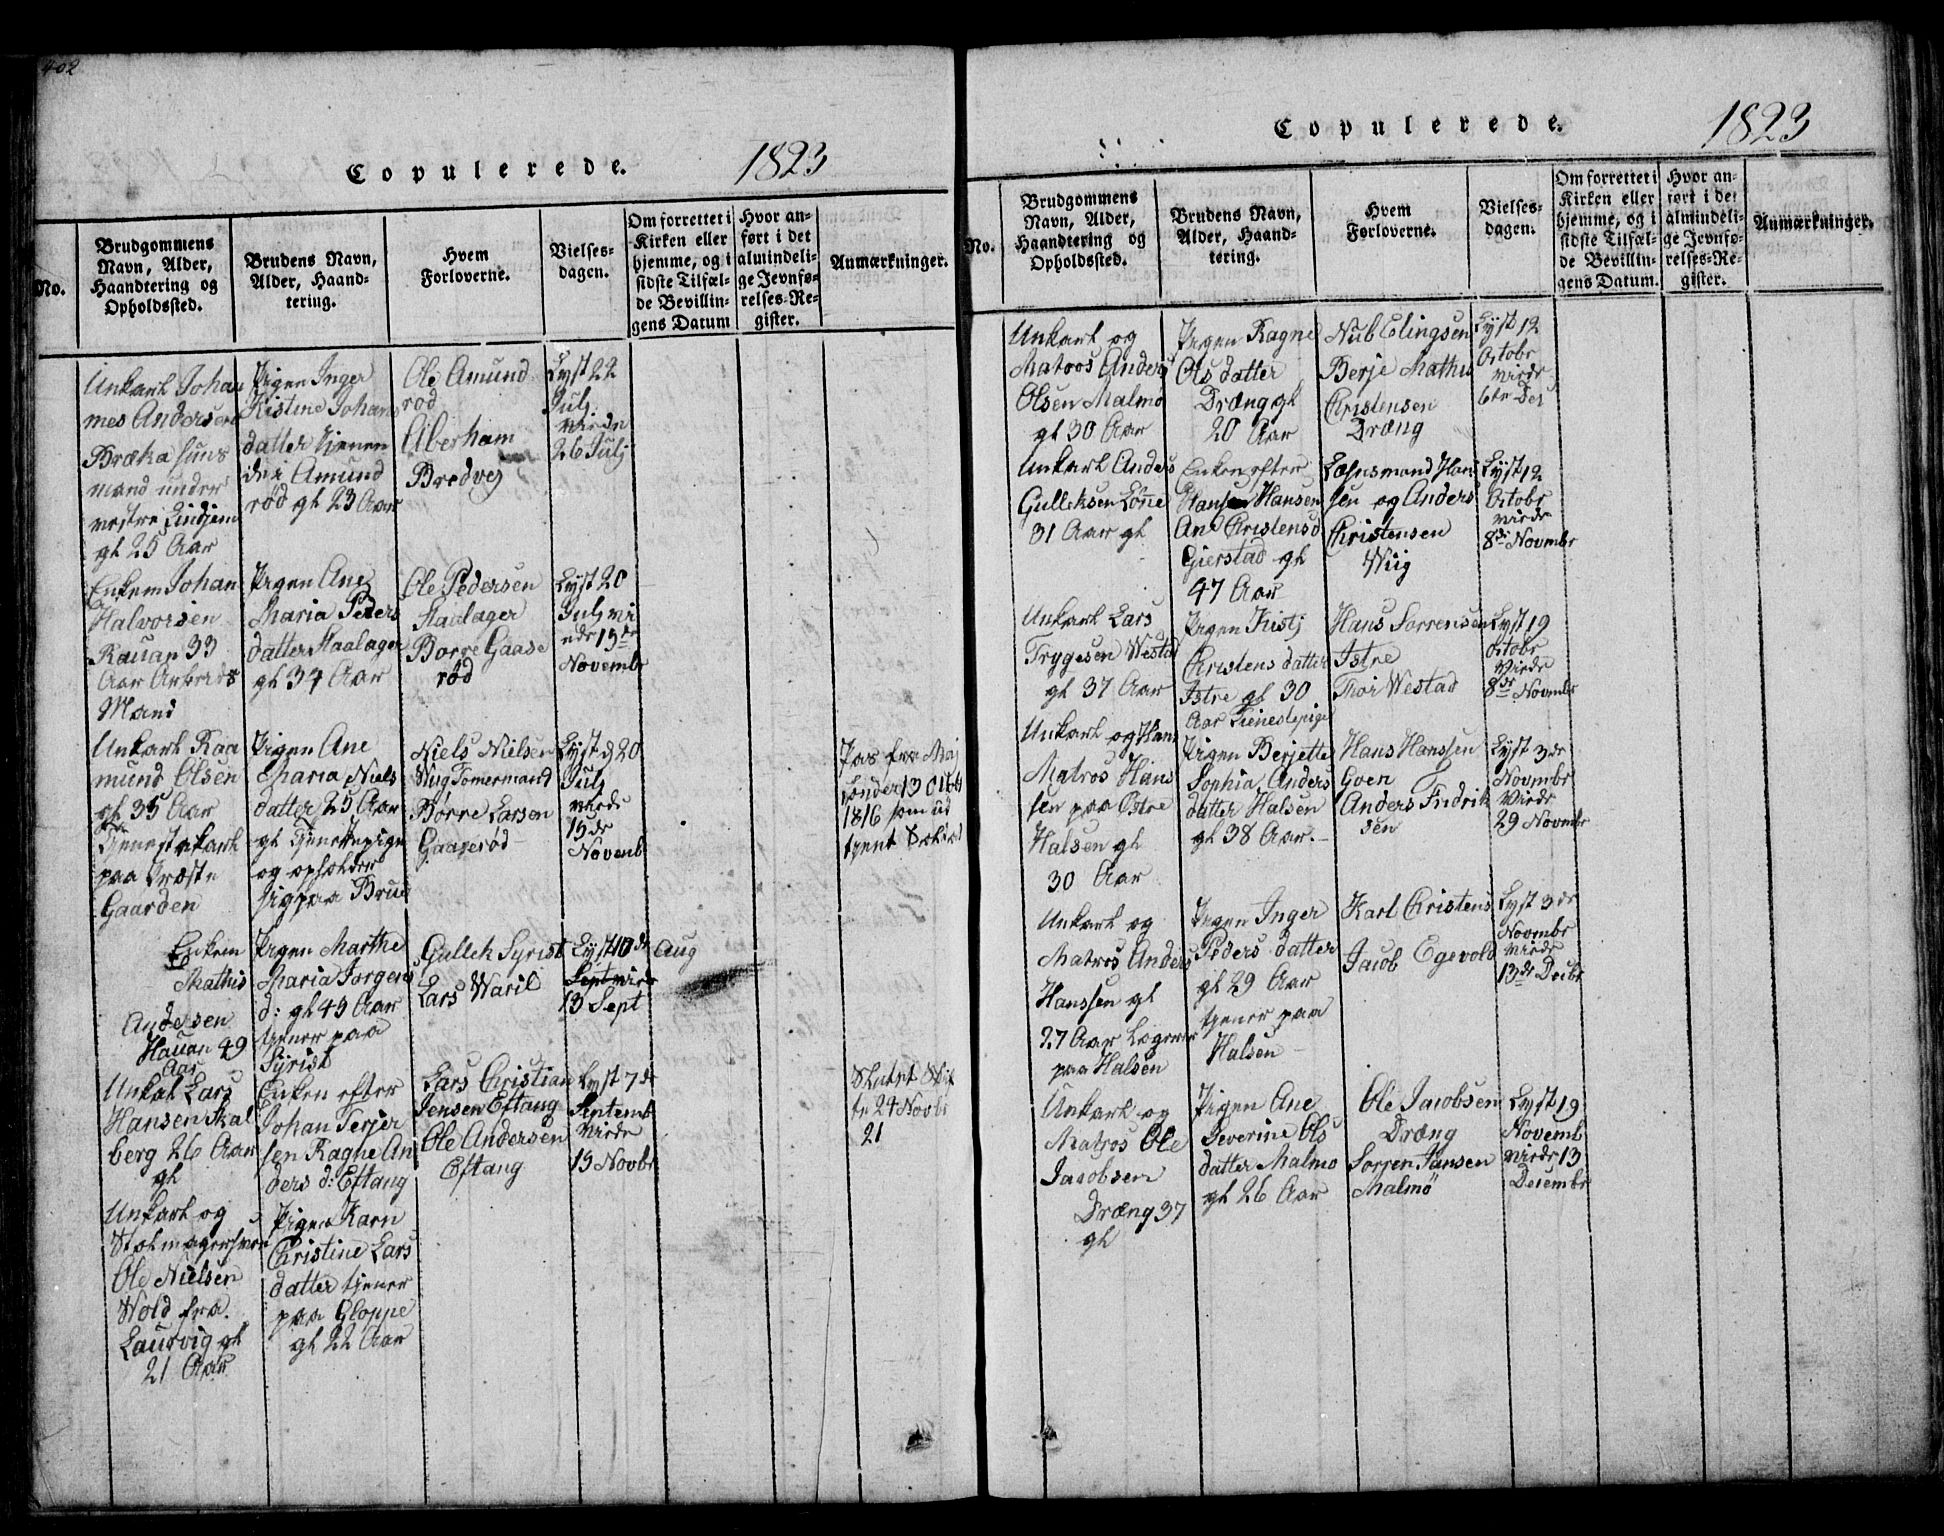 402
Copulerede. 1823
No.
Brudgommens
Navn, Alder,
Haandtering og
Opholdssted.
Brudens Navn,
Alder, Haand-
tering.
Hvem
Forloverne.
Vielses-
dagen.
Om forrettet i
Kirken eller
hjemme, og i
sidste Tilfæl-
de Bevillin-
gens Datum
Hvor an-
ført i det
almindeli-
ge Jevnfø-
relses-Re-
gister.
Anmærkninger.
Unkarl Johan
mes Andersen
Bræka huus
mand under
vestre Lindjem
gl 25 Aar
Pigen Inger
Kistine Johans
datter tjenen
de i Amund
rød gl 23 Aar
Ole Amund
rød
Aberham
Bredvej
Lyst 22
Julj
virde
26 Julj
Enkem Johan
Halvorsen
Rauan 33
Aar Arbeids
Mand
Pigen Ane
Maria Peders
datter Haalager
gl 34 Aar
Ole Pedersen
Haalager
Borre Gaase
rød
Lyst 20
Julj vi
rde 15de
Novembr
Unkarl Raa
mund Olsen
gl 35 Aar
Tjenestekarl
paa Præste
Gaarden
Pigen Ane
Maria Niels
datter 25 Aar
gl Tjenestepige
og opholder
sig paa Bruu
Niels Nielsen
Wiig Tømermand
Børre Larsen
Gaaserød
Lyst d 20
Julj
virde
15de
Novemb
Pas fra Maj
Sønder 13 Oktb
1816 som ud
tjent Soldat
Enkem
Mathis
Andersen
Hauan 49
Aar
Pigen Marthe
Maria Jørgens
d: gl 43 Aar
tjener paa
Syrist
Gullek Syrist
Lars Waril
Lyst 10de Aug
Sept virde
13 Sept
Unkal Lars
Hansen Skal
berg 26 Aar
gl
Enken efter
Johan Terjer
sen Ragne An
ders d: Eftang
Lars Christian
Jensen Eftang
Ole Andersen
Eftang
Lyst 7de
Septemb
virde
15 Novbr
Sluttet Skif
te 24 Novbr
21
Unkarl og
Stolmagersven
Ole Nielsen
Wold fra
Laurvig gl
21 Aar
Pigen Karn
Christine Lars
datter tjener
paa Gloppe
gl 22 Aar
Copulerede. 1823
No.
Brudgommens
Navn, Alder,
Haandtering og
Opholdssted.
Brudens Navn,
Alder, Haand-
tering.
Hvem
Forloverne.
Vielses-
dagen.
Om forrettet i
Kirken eller
hjemme, og i
sidste Tilfæl-
de Bevillin-
gens Datum.
Hvor an-
ført i det
almindeli-
ge Jevnfø-
relses-Re-
gister.
Anmærkninger.
Unkarl og
Matros Anders
Olsen Malmø
gl 30 Aar
Pigen Ragne
Ols datter
Dræng gl
20 Aar
Nub Elingsen
Berje Mathis
Christensen
Dræng
Lyst 12
Octobr
virde
6te Des
Unkarl Anders
Gulleksen Lønne
31 Aar gl
Enken efter
Hans Hansen
Ane Christensd
Gierstad gl
47 Aar
Lehnsmand Han
sen og Anders
Christensen
Wiig
Lyst 12
Octobr
virde
8de Novmbr
Unkarl Lars
Trygesen Westad
gl 37 Aar
Pigen Kistj
Christens datter
Istre gl 30
Aar Tienestepige
Hans Sørrensen
Istre
Thor Westad
Lyst 19
Octobr
Virde
8de Novmbr
Unkarl og Han
Matros Han
sen paa Østre
Halsen gl
30 Aar
Pigen Berjette
Sophia Anders
datter Halsen
gl 38 Aar.
Hans Hanssen
Goen
Anders Fredrik
sen
Lyst 3de
Novmbr
Virde
29 Novmbr
Unkarl og
Matros Anders
Hanssen gl
27 Aar Logerer
paa Halsen
Pigen Inger
Peders datter
gl 29 Aar
tjener paa
Halsen
Karl Christens
Jacob Egevold
Lyst 3de
Novmbr
virde
13de Decbr
Unkarl og
Matros Ole
Jacobsen
Dræng 37
gl
Pigen Ane
Severine Ols
datter Malmø
gl 26 Aar
Ole Jacobsen
Dræng
Sørren Jansen
Malmø
Lyst 19
Novemb
virde 13
Decembr